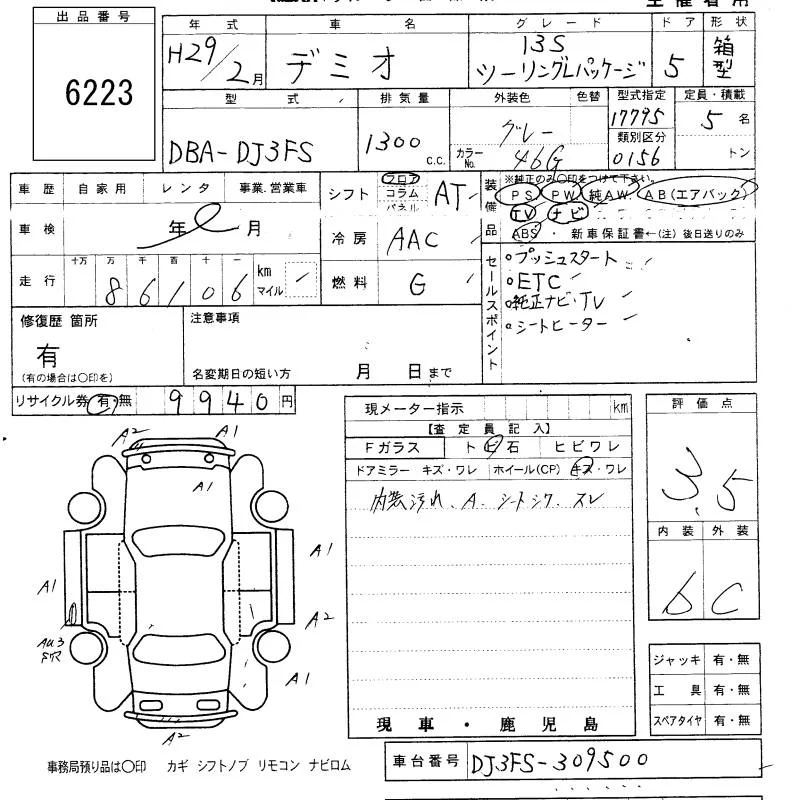 出品番号
6223
年式
H29/2月
車名
デミオ
グレード
13S
ツーリングLパッケージ
ドア
5
形状
箱型
型式
DBA-DJ3FS
排気量
1300 c.c.
外装色 色替
グレー
カラーNo. 46G
型式指定
17795
類別区分
0156
定員・積載
5 名
トン
車歴 自家用 レンタ 事業.営業車
車検 年 月
走行 十万 万 千 百 十 一
8 6 1 0 6 km マイル
シフト フロア コラム パネル AT
冷房 AAC
燃料 G
装備品
※純正のみ〇印をつけて下さい。
PS PW 純AW. AB(エアバック)
TV ナビ
ABS ・ 新車保証書←(注) 後日送りのみ
セールスポイント
プッシュスタート
ETC
純正ナビ・TV
シートヒーター
修復歴 箇所
有
(有の場合は〇印を)
注意事項
名変期日の短い方 月 日まで
リサイクル券 有・無 9940円
現メーター指示 km
【査定員記入】
Fガラス ト ビ 石 ヒビワレ
ドアミラー キズ・ワレ ホイール(CP) キズ・ワレ
内装汚れ、A、シートシワ、スレ
現車・鹿児島
評価点
3.5
内装 外装
b C
ジャッキ 有・無
工具 有・無
スペアタイヤ 有・無
A2 A1
A1
A1
A1
A2
AU3
A1
A2
事務局預り品は〇印 カギ シフトノブ リモコン ナビロム
車台番号 DJ3FS-309500